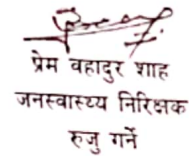 प्रेम वहादुर शाह
जनस्वास्थ्य निरिक्षक
रुजु गर्ने